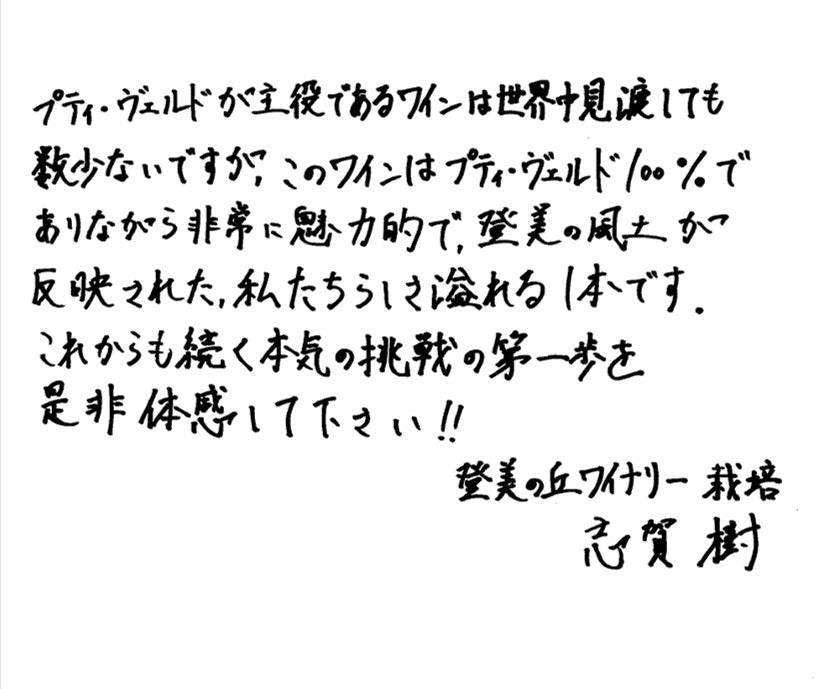 プティ・ヴェルドが主役であるワインは世界中見渡しても
数少ないですが、このワインはプティ・ヴェルド100%で
ありながら非常に魅力的で、登美の風土が
反映された、私たちらしさ溢れる1本です.
これからも続く本気の挑戦の第一歩を
是非体感して下さい!!
登美の丘ワイナリー 栽培
志賀 樹